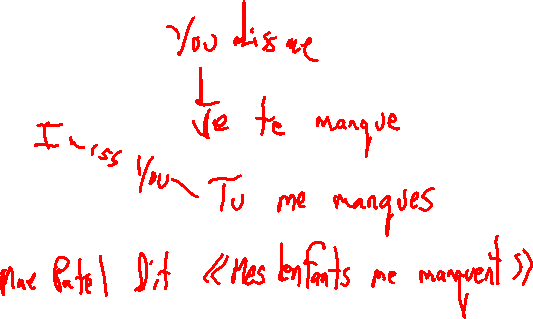 You me
Je te manque
I miss You
Tu me manques
Mme Patel Dit «Mes enfants me manquent»